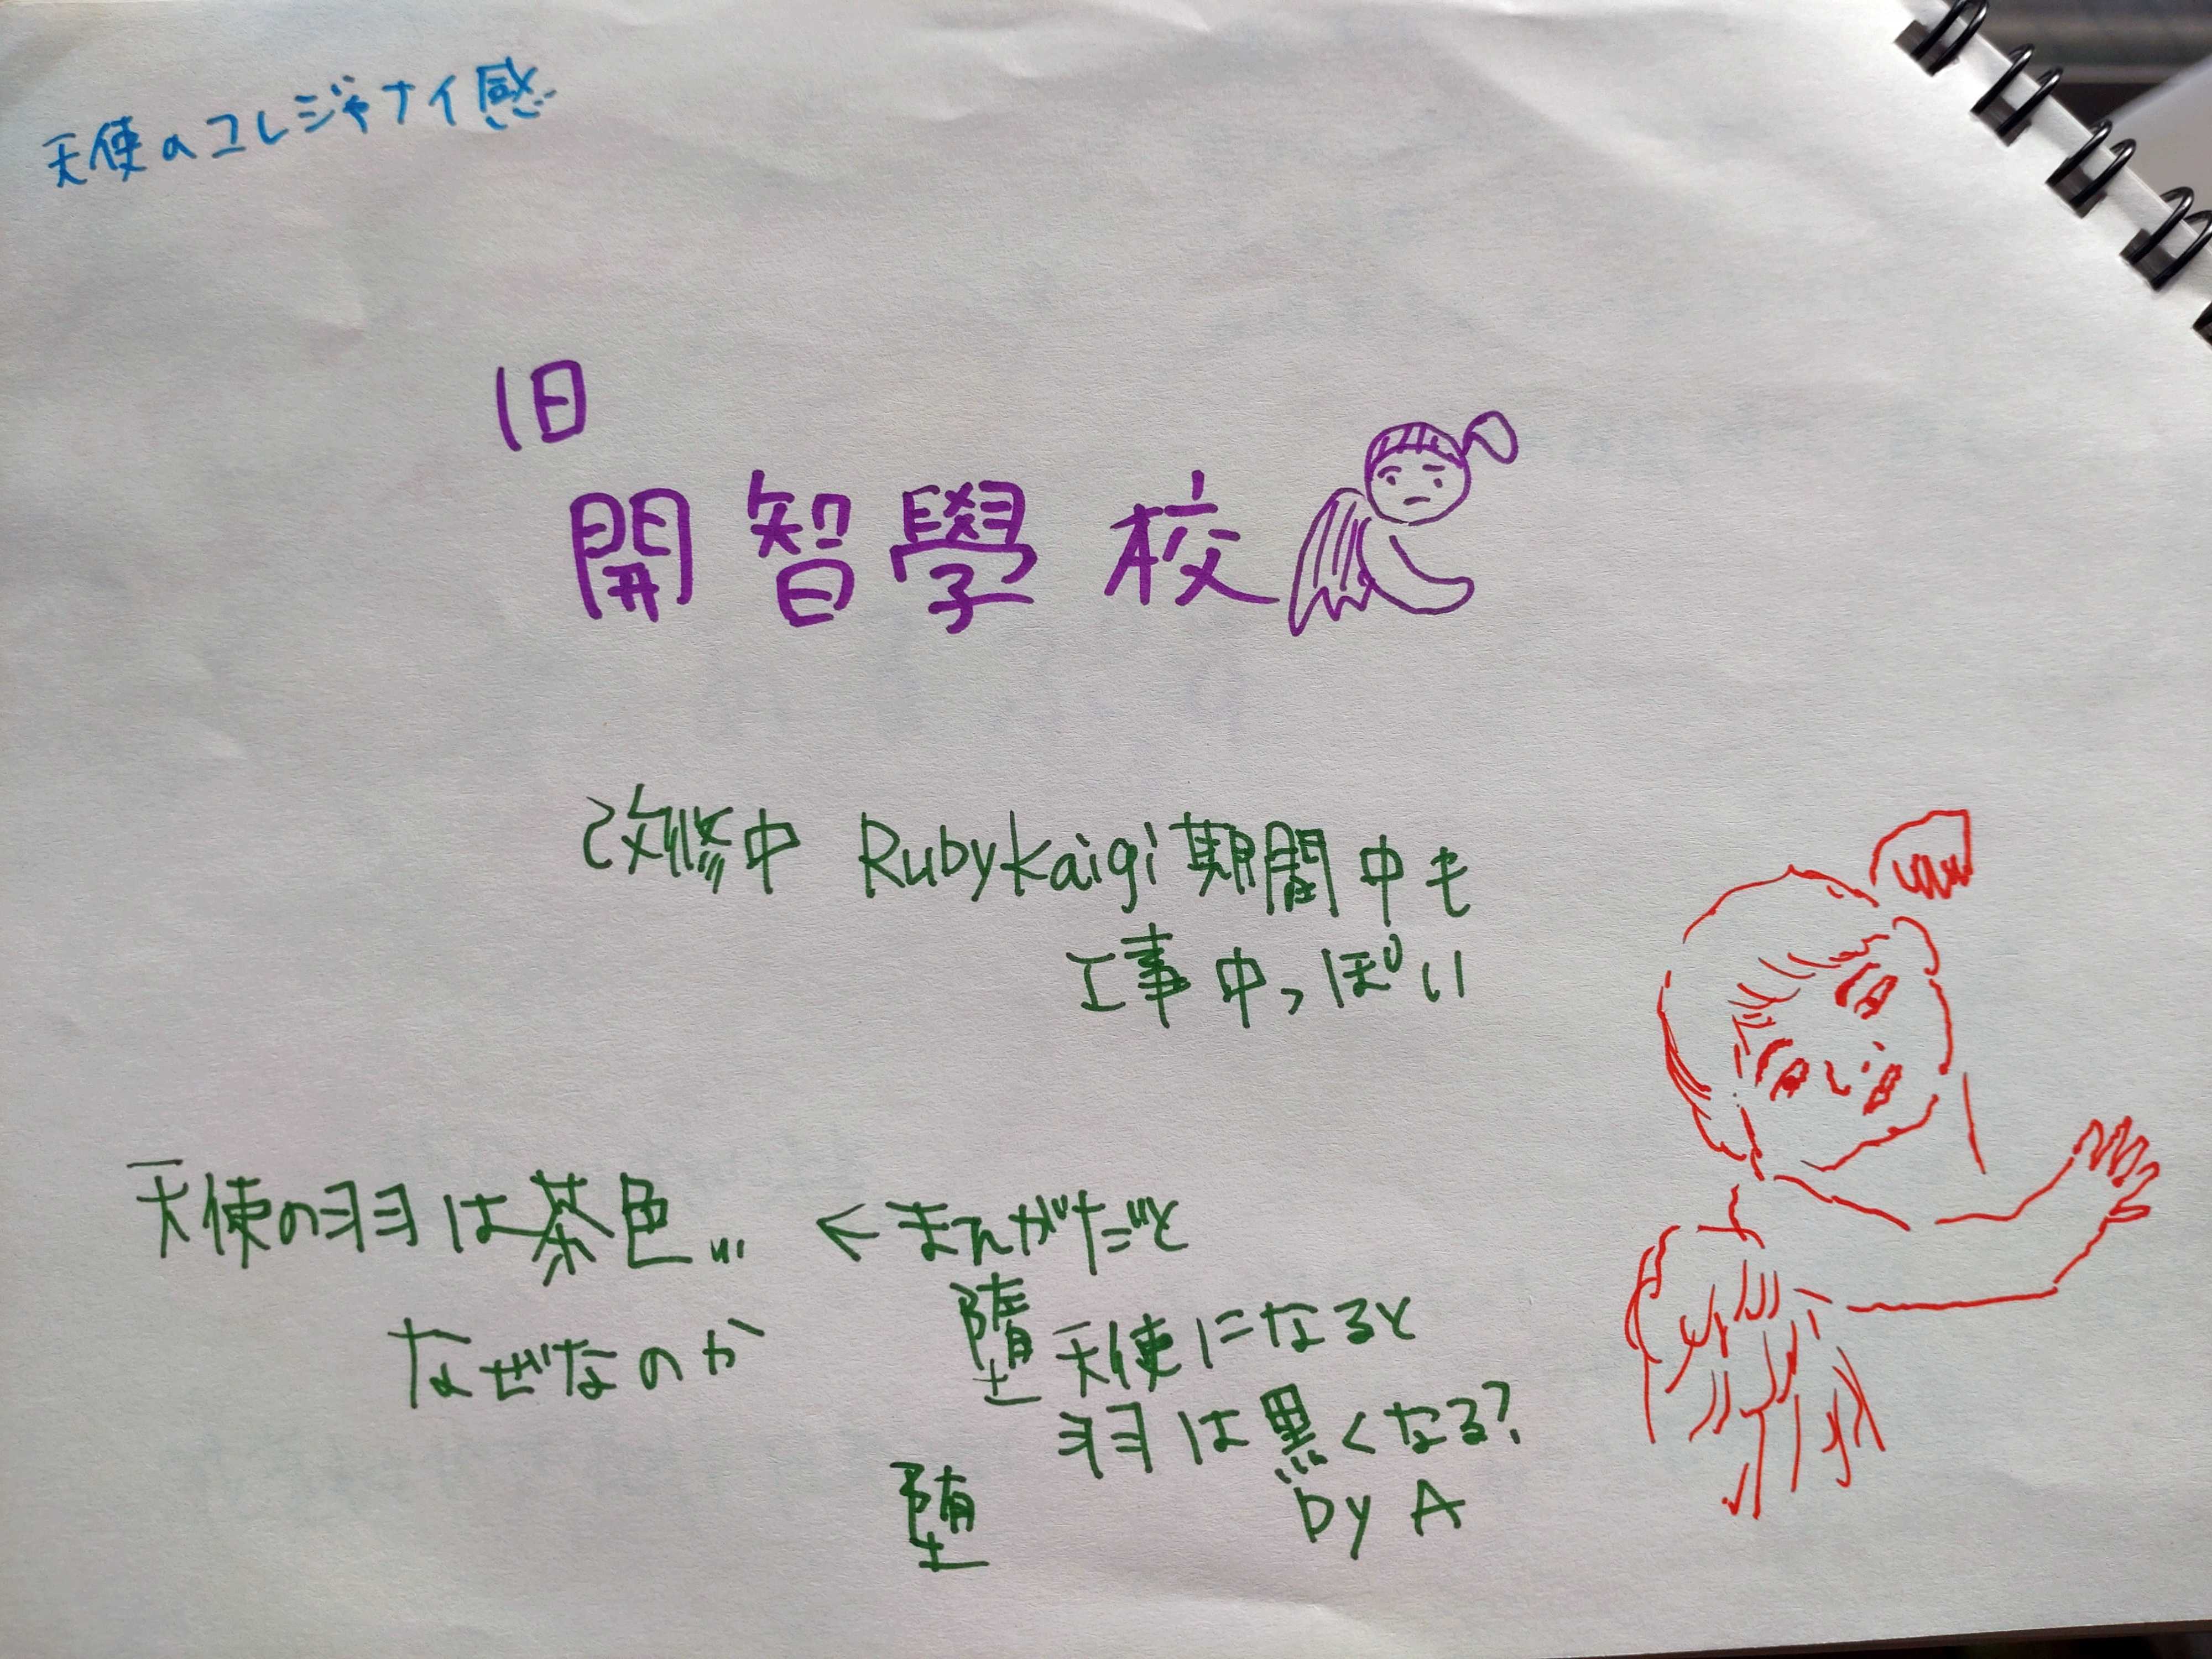 天使のコレジャナイ感
旧
開智學校
改修中 RubyKaigi期間中も
工事中っぽい
天使の羽は茶色…
なぜなのか
←まんがだと
堕天使になると
羽は黒くなる?
by A
堕